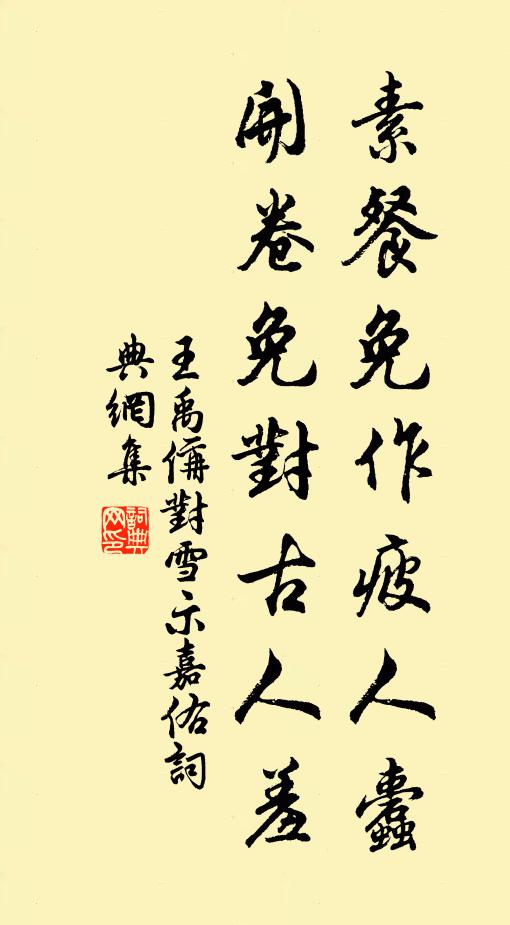 素餐免作疲人蠹
開卷免對古人羞
王禹偁對雪示嘉佑詞
典網集
詞典
网印